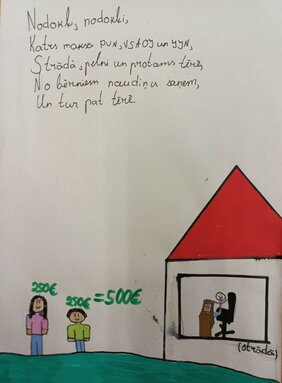 Nodokļi, nodokļi,
Katrs maksā PVN, VSAOI un IIN,
Strādā, pelni un protams tērē,
No bērniem naudiņu saņem,
Un tur pat tērē.
250€
250€ = 500€
(strādā)